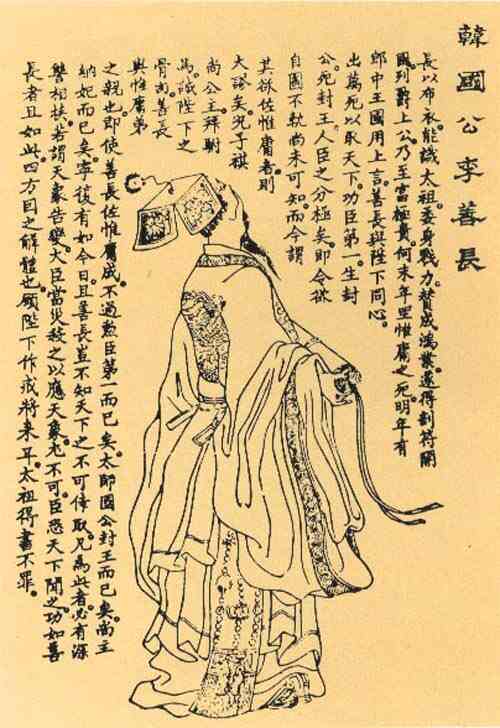 韓國公李善長
長以布衣能識太祖。委身戮力。贊成鴻業。遂得剖符開
國列爵上公。乃至富極貴。何末年里惟庸之死。明年有
郎中王國用上言。善長與陛下同心。
出萬死以取天下。功臣第一生封
公。死封王人臣之分極矣。即令欲
自圖不軌尚未可知而今謂
其欲佐惟庸者。則
大謬矣。況子祺
尚公主。拜駙
馬。誠陛下之
骨肉善長
與惟庸弟
之親也。即使善長佐惟庸成。不過勳臣第一而已矣。太師國公封王而已矣。尚主
納妃而已矣。寧復有如今日。且善長豈不知天下之不可倖取。凡為此者。必有深
讐相挾。若謂天象告變。大臣當災。殺之以應天象。尤不可。臣恐天下聞之。功如善
長者且如此。四方因之解體也。願陛下作戒將來耳。太祖得書不罪。